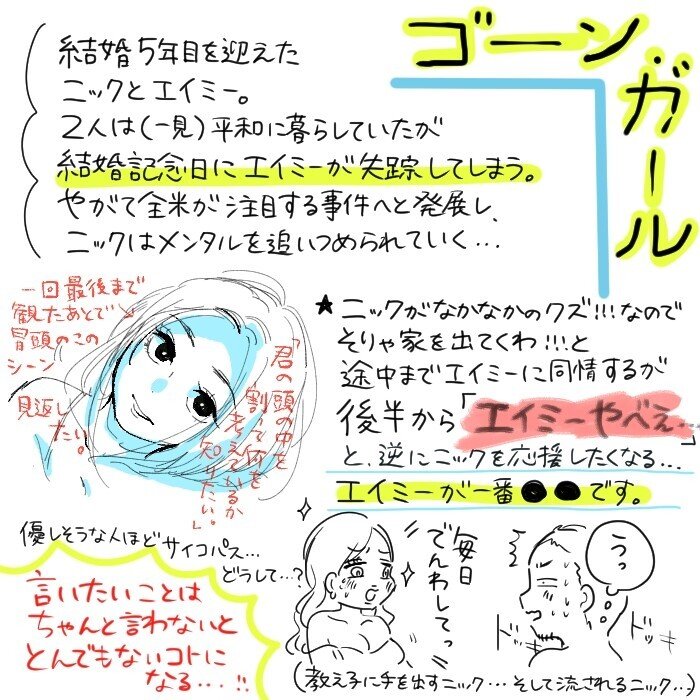 ゴーン・ガール
結婚5年目を迎えた
ニックとエイミー。
2人は(一見)平和に暮らしていたが
結婚記念日にエイミーが失踪してしまう。
やがて全米が注目する事件へと発展し、
ニックはメンタルを追いつめられていく…
一回最後まで
観たあとで
冒頭のこの
シーン
見返し
たい。
「君の頭の中を
割って何を
考えているか
知りたい。」
★ニックがなかなかのクズ!!!なので
そりゃ家を出てくわ!!!と
途中までエイミーに同情するが
後半から「エイミーやべぇ…」
と、逆にニックを応援したくなる…
エイミーが一番●●です。
優しそうな人ほどサイコパス…
どうして…?
言いたいことは
ちゃんと言わないと
とんでもないコトに
なる…!!
毎日
でんわしてっ
うっ
ドッキ
ドッキ
(教え子に手を出すニック…そして流されるニック…)